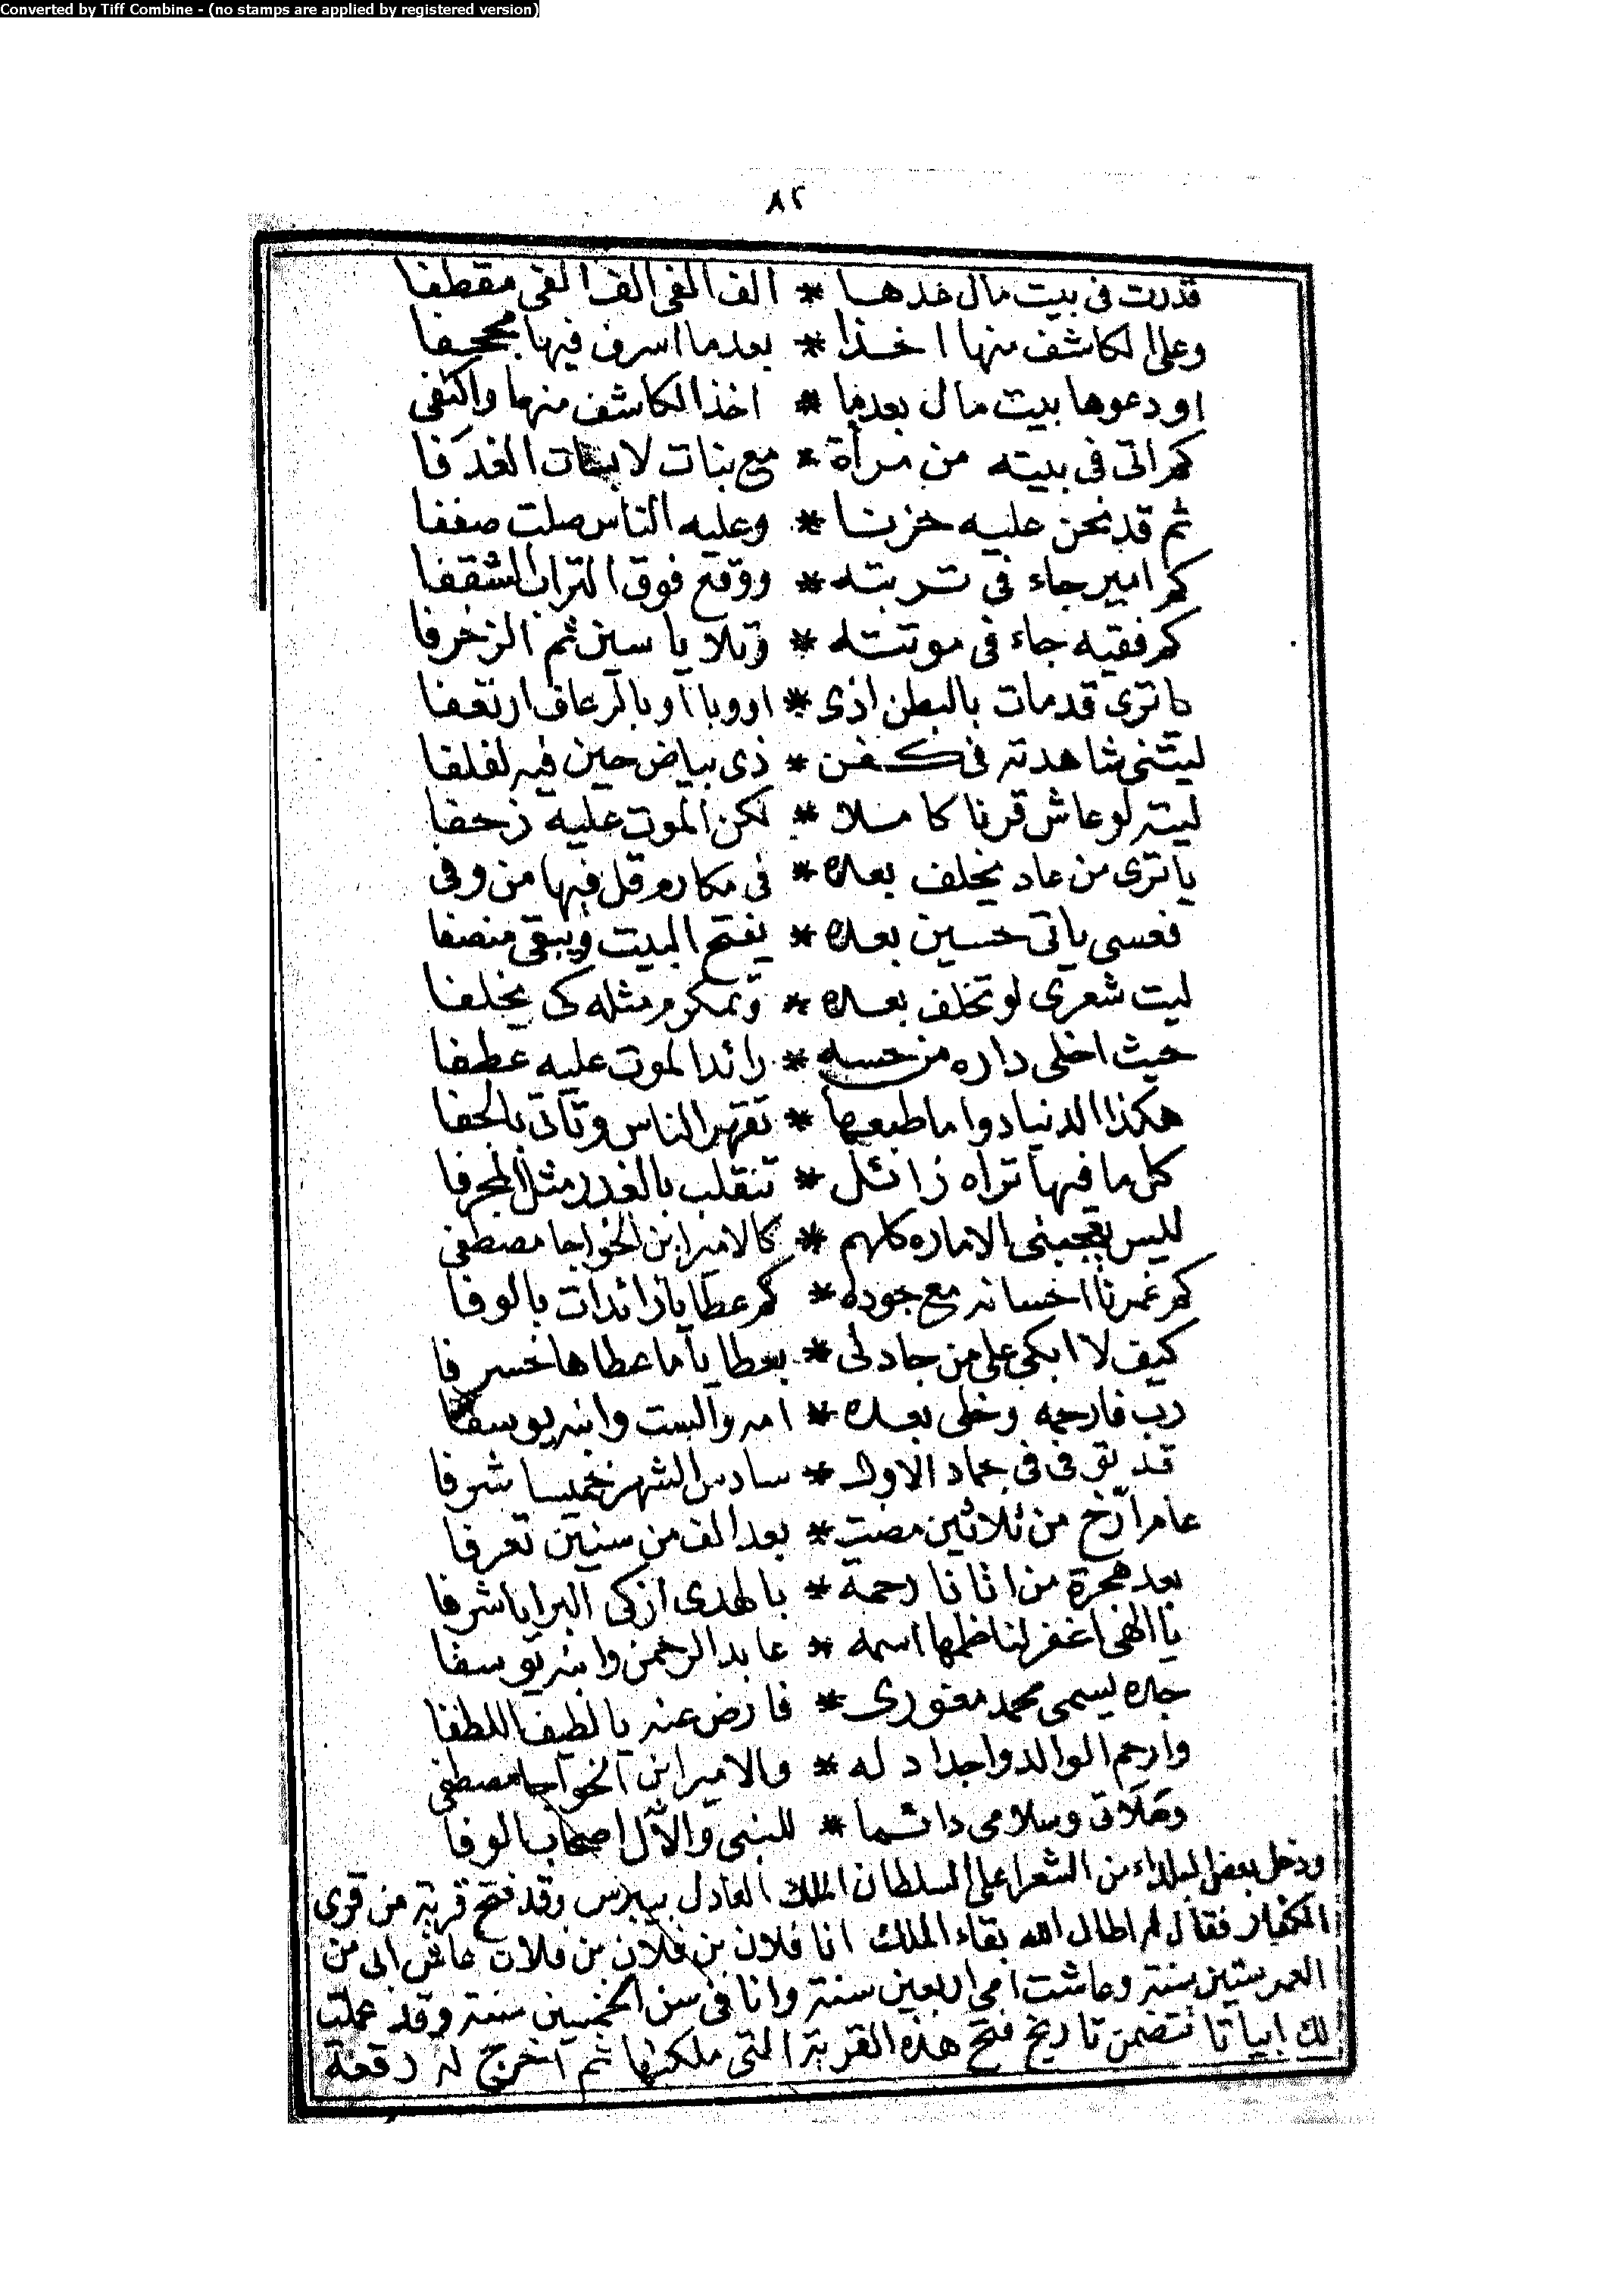 Converted by Tiff Combine - (no stamps are applied by registered version)
٨٢
قدرت فى بيت مال خدها * الف الفى الف الفى مقطفا
وعلى الكاشف منها اخذا * بعدما اسرف فيها مجحفا
اودعوها بيت مال بعدما * اخذ الكاشف منها واكتفى
كم اتى فى بيته من مرأة * مع بنات لابسات الغدفا
ثم قد نحن عليه حزنا * وعليه الناس صلت صففا
كم امير جاء فى تربته * ووقع فوق التراب الشقفا
كم فقيه جاء فى موتته * وتلا ياسين ثم الزخرفا
يا ترى قد مات بالبطن اذى * او وباأ او بالرعاف ارتعفا
ليتنى شاهدته فى كفن * ذى بياض حين فيه لفلفا
ليته لو عاش قرنا كاملا * لكن الموت عليه زحفا
يا ترى من عاد يخلف بعده * فى مكارم قل فيها من وفى
فعسى ياتى حسين بعده * يفتح البيت ويبقى منصفا
ليت شعرى لو تخلف بعده * وتمكرم مثله كى يخلفا
حيث اخلى داره من حسه * رائد الموت عليه عطفا
هكذا الدنيا دواما طبعها * تقهر الناس وتأتى بالجفا
كل ما فيها تراه زائل * تنقلب بالغدر مثل المجرفا
ليس يعجبنى الاماره كلهم * كالامير ابن الخواجا مصطفى
كم غمرنا احسانه مع جوده * كم عطايا زائدات بالوفا
كيف لا ابكى على من جاد لى * بعطايا ما عطاها خسرفا
رب فارحمه وخلى بعده * امه والست وابنه يوسفا
قد توفى فى جماد الاول * سادس الشهر خميسا شرفا
عام ارّخ من ثلاثين مضت * بعد الف من سنين تعرفا
بعد هجرة من اتانا رحمة * بالهدى ازكى البرايا شرفا
يا الهى اغفر لناظمها اسمه * عابد الرحمن وابنه يوسفا
جده يسمى محمد مغورى * فارض عنه يا لطيف اللطفا
وارحم الوالد واجداد له * والامير ابن الخواجا مصطفى
وصلاتى وسلامى دائما * للنبى والآل اصحاب الوفا
ودخل بعض البلداء من الشعرا على السلطان الملك العادل بيبرس وقد فتح قرية من قرى
الكفار فقال له اطال الله بقاء الملك انا فلان بن فلان من فلان عاش ابى من
العمر ستين سنة وعاشت امى اربعين سنة وانا فى سن الخمسين سنة وقد عملت
لك ابياتا تتضمن تاريخ فتح هذه القرية التى ملكتها ثم اخرج له رقعة